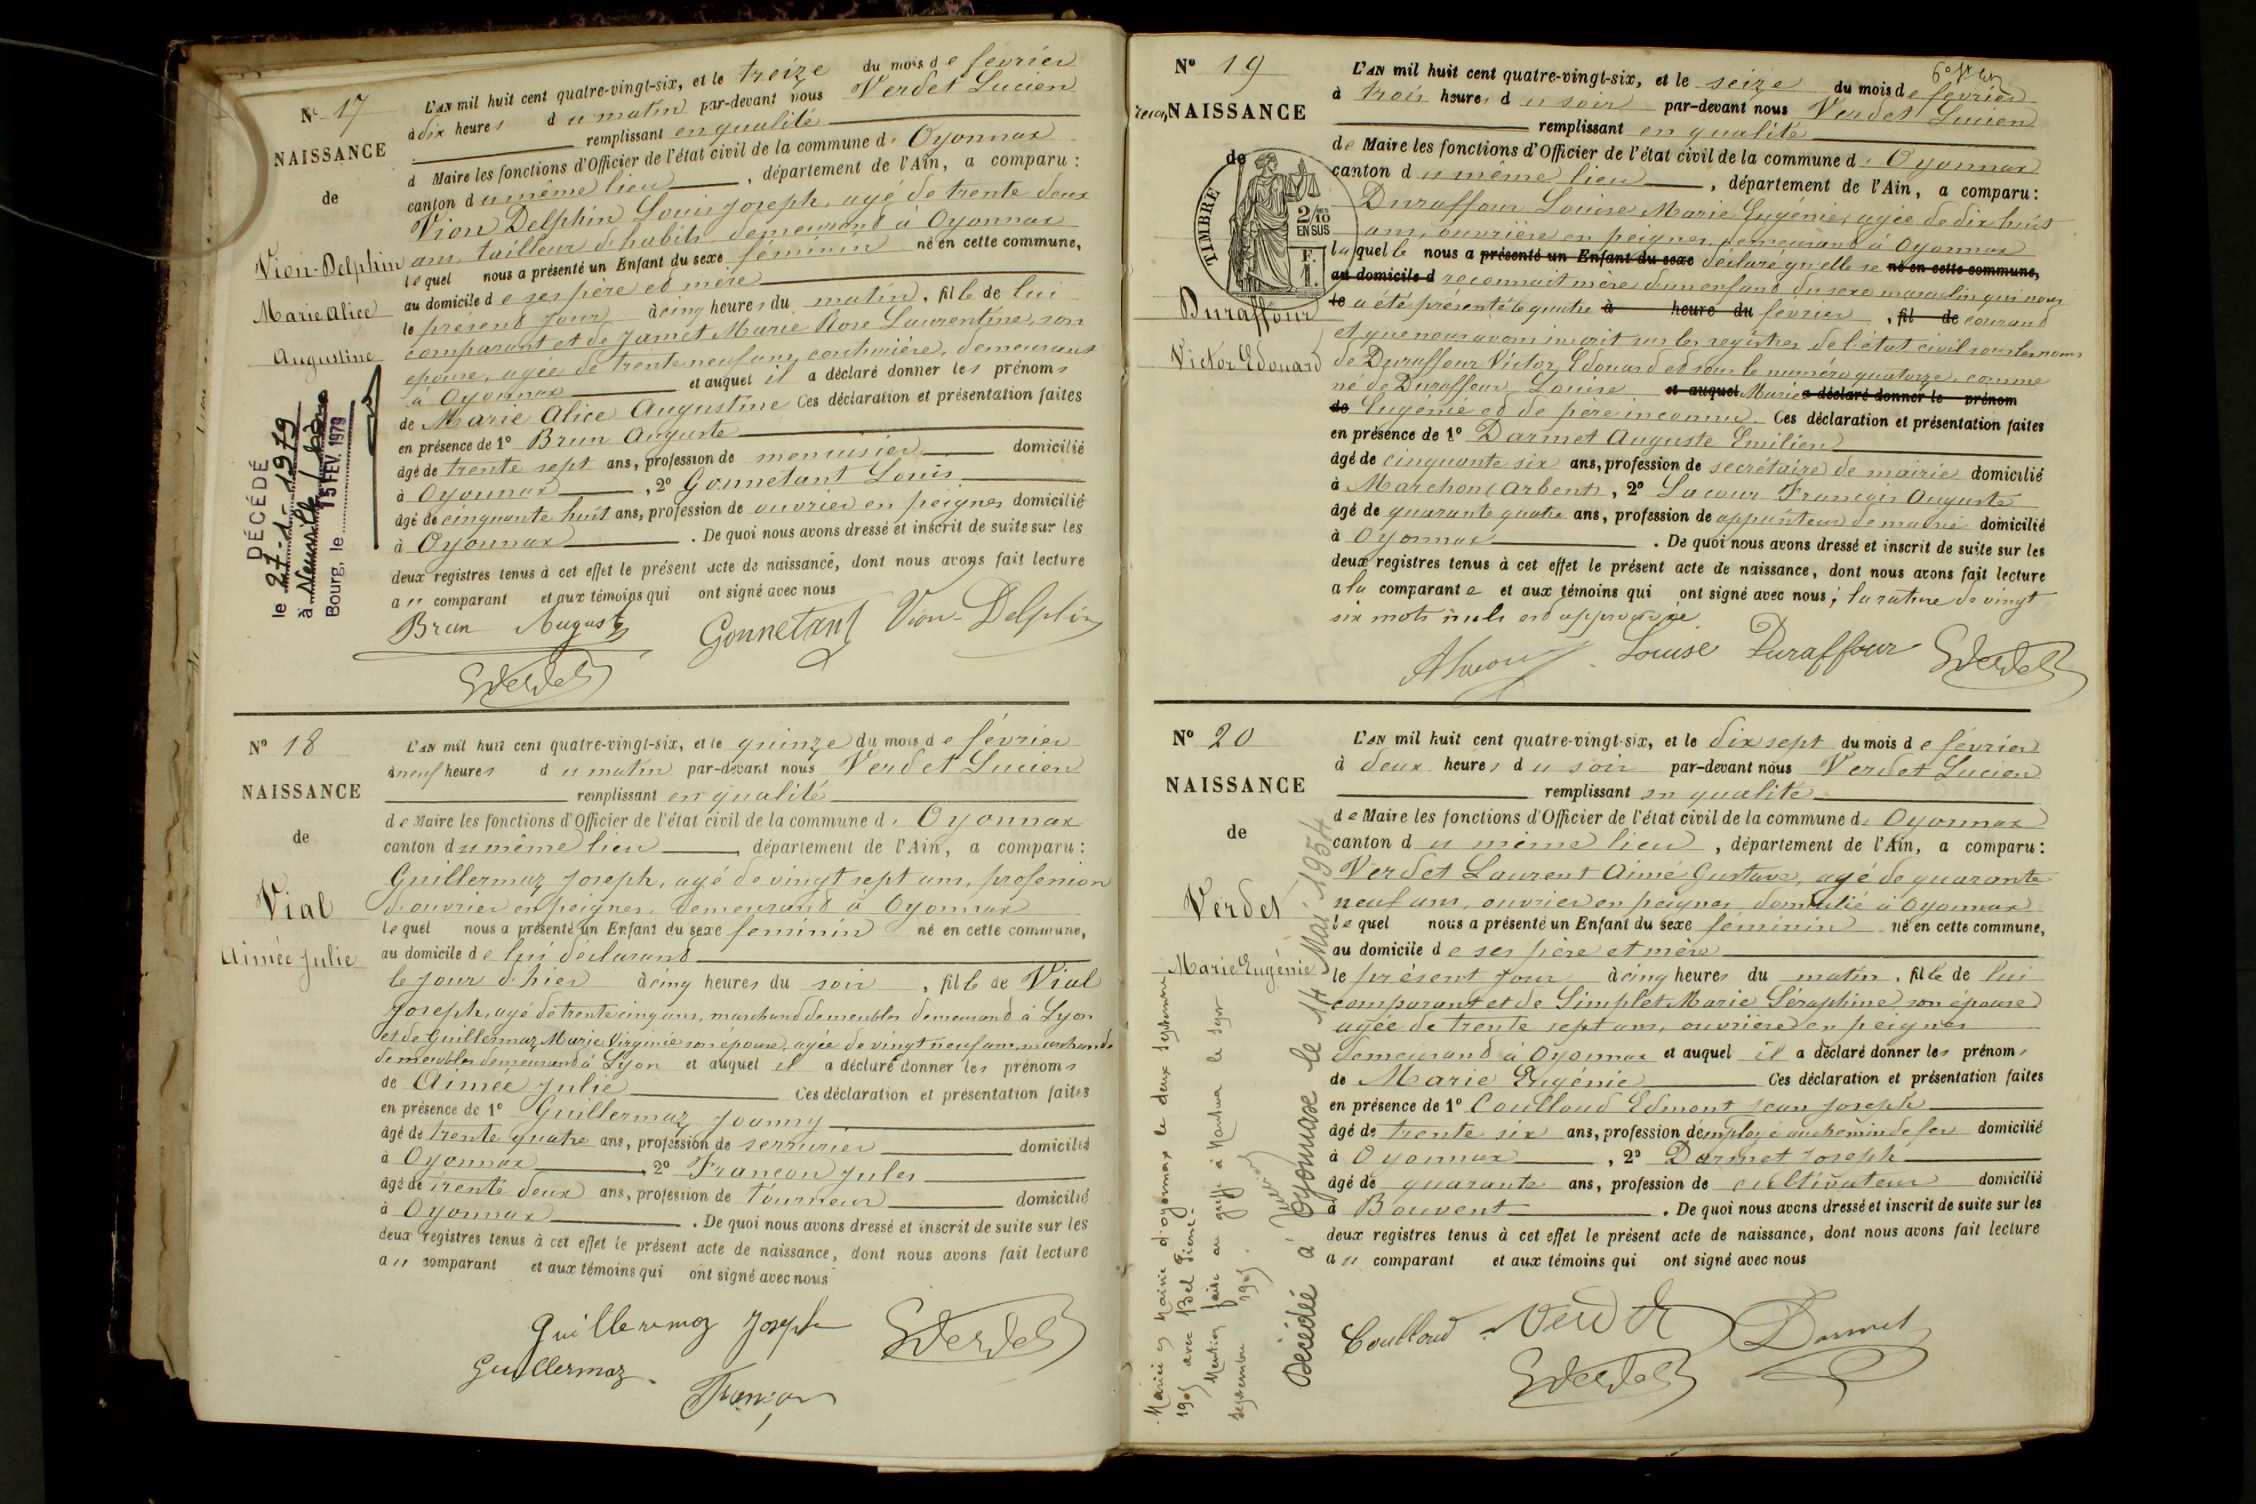 Nº 17
NAISSANCE
de
Vion-Delphin
Marie Alice
Augustine
DÉCÉDÉ
le 27-1-1979
à Neuville
Bourg, le 15 FEV. 1979
L'AN mil huit cent quatre-vingt-six, et le treize du mois de février
à dix heures du matin par-devant nous Verdet Lucien
remplissant en qualité
d Maire les fonctions d'Officier de l'état civil de la commune d' Oyonnax
canton du même lieu, département de l'Ain, a comparu :
Vion Delphin Louis Joseph, agé de trente deux
ans, tailleur d'habits demeurant à Oyonnax
lequel nous a présenté un Enfant du sexe féminin né en cette commune,
au domicile de ses père et mère
le présent jour à cinq heures du matin, fille de lui
comparant et de Jamet Marie Rose Laurentine, son
épouse, agée de trente neuf ans, couturière, demeurant
à Oyonnax et auquel il a déclaré donner les prénoms
de Marie Alice Augustine Ces déclaration et présentation faites
en présence de 1º Brun Auguste
âgé de trente sept ans, profession de menuisier domicilié
à Oyonnax, 2º Gonnetant Louis
âgé de cinquante huit ans, profession de ouvrier en peignes domicilié
à Oyonnax. De quoi nous avons dressé et inscrit de suite sur les
deux registres tenus à cet effet le présent acte de naissance, dont nous avons fait lecture
au comparant et aux témoins qui ont signé avec nous
Brun Auguste Gonnetant Vion-Delphin
Verdet
Nº 18
NAISSANCE
de
Vial
Aimée Julie
L'AN mil huit cent quatre-vingt-six, et le quinze du mois de février
à neuf heures du matin par-devant nous Verdet Lucien
remplissant en qualité
de Maire les fonctions d'Officier de l'état civil de la commune d' Oyonnax
canton du même lieu, département de l'Ain, a comparu :
Guillermoz Joseph, agé de vingt sept ans, profession
d'ouvrier en peignes demeurant à Oyonnax
lequel nous a présenté un Enfant du sexe feminin né en cette commune,
au domicile de lui déclarant
le jour d'hier à cinq heures du soir, fille de Vial
Joseph, agé de trente cinq ans, marchand de meubles demeurant à Lyon
et de Guillermoz Marie Virginie son épouse, agée de vingt neuf ans, marchande
de meubles demeurant à Lyon et auquel il a déclaré donner les prénoms
de Aimée Julie Ces déclaration et présentation faites
en présence de 1º Guillermoz Joanny
âgé de trente quatre ans, profession de serrurier domicilié
à Oyonnax 2º Françon Jules
âgé de trente deux ans, profession de tourneur domicilié
à Oyonnax. De quoi nous avons dressé et inscrit de suite sur les
deux registres tenus à cet effet le présent acte de naissance, dont nous avons fait lecture
au comparant et aux témoins qui ont signé avec nous
Guillermoz Joseph Verdet
Guillermoz
Françon
Nº 19
NAISSANCE
de
TIMBRE
2/10 EN SUS
F. 1.
Duraffour
Victor Edouard
L'AN mil huit cent quatre-vingt-six, et le seize du mois de février
à trois heures du soir par-devant nous Verdet Lucien
remplissant en qualité
de Maire les fonctions d'Officier de l'état civil de la commune d' Oyonnax
canton du même lieu, département de l'Ain, a comparu :
Duraffour Louise Marie Eugénie, agée de dix huit
ans, ouvrière en peignes demeurant à Oyonnax
laquelle nous a présenté un Enfant du sexe déclaré qu'elle se né en cette commune,
au domicile d reconnait mère d'un enfant du sexe masculin qui nous
le a été présenté le quatre à heure du février, fil de courant
et que nous avons inscrit sur les registres de l'état civil sous les noms
de Duraffour Victor Edouard et sous le numéro quatorze, comme
né de Duraffour Louise et auquel Marie a déclaré donner le prénom
de Eugénie et de père inconnu. Ces déclaration et présentation faites
en présence de 1º Darmet Auguste Emilien
âgé de cinquante six ans, profession de secrétaire de mairie domicilié
à Marchon (Arbent), 2º Lacour François Auguste
âgé de quarante quatre ans, profession de appariteur de mairie domicilié
à Oyonnax. De quoi nous avons dressé et inscrit de suite sur les
deux registres tenus à cet effet le présent acte de naissance, dont nous avons fait lecture
a la comparante et aux témoins qui ont signé avec nous; la rature de vingt
six mots nuls est approuvée
Louise Duraffour Verdet
Nº 20
NAISSANCE
de
Verdet
Marie Eugénie
Mariée en Mairie d'Oyonnax le deux septembre
1905 avec Bel Pierre.
Mention faite au greffe à Nantua le sept
septembre 1905.
Décédée à Oyonnax le 14 Mai 1954
L'AN mil huit cent quatre-vingt-six, et le dix sept du mois de février
à deux heures du soir par-devant nous Verdet Lucien
remplissant en qualité
de Maire les fonctions d'Officier de l'état civil de la commune d' Oyonnax
canton du même lieu, département de l'Ain, a comparu :
Verdet Laurent Aimé Gustave, agé de quarante
neuf ans, ouvrier en peignes domicilié à Oyonnax
lequel nous a présenté un Enfant du sexe féminin né en cette commune,
au domicile de ses père et mère
le présent jour à cinq heures du matin, fille de lui
comparant et de Simplet Marie Séraphine son épouse
agée de trente sept ans, ouvrière en peignes
demeurant à Oyonnax et auquel il a déclaré donner les prénoms
de Marie Eugénie Ces déclaration et présentation faites
en présence de 1º Coulloud Edmont Jean Joseph
âgé de trente six ans, profession d'employé au chemin de fer domicilié
à Oyonnax, 2º Darmet Joseph
âgé de quarante ans, profession de cultivateur domicilié
à Bouvent. De quoi nous avons dressé et inscrit de suite sur les
deux registres tenus à cet effet le présent acte de naissance, dont nous avons fait lecture
au comparant et aux témoins qui ont signé avec nous
Coulloud Verdet Darmet
Verdet